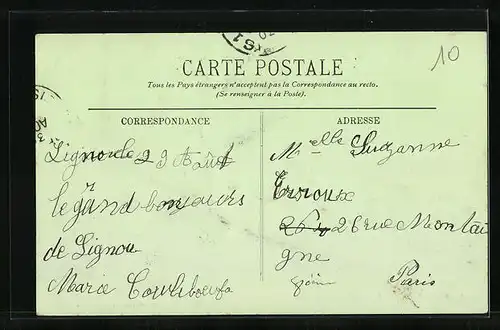 10
CARTE POSTALE
Tous les Pays étrangers n'acceptent pas la Correspondance au recto.
(Se renseigner à la Poste).
CORRESPONDANCE
Lignou le 22 Août
le gránd bonjours
de Lignou
Marie
ADRESSE
Melle Suzanne
26 rue Montai
gne
Paris